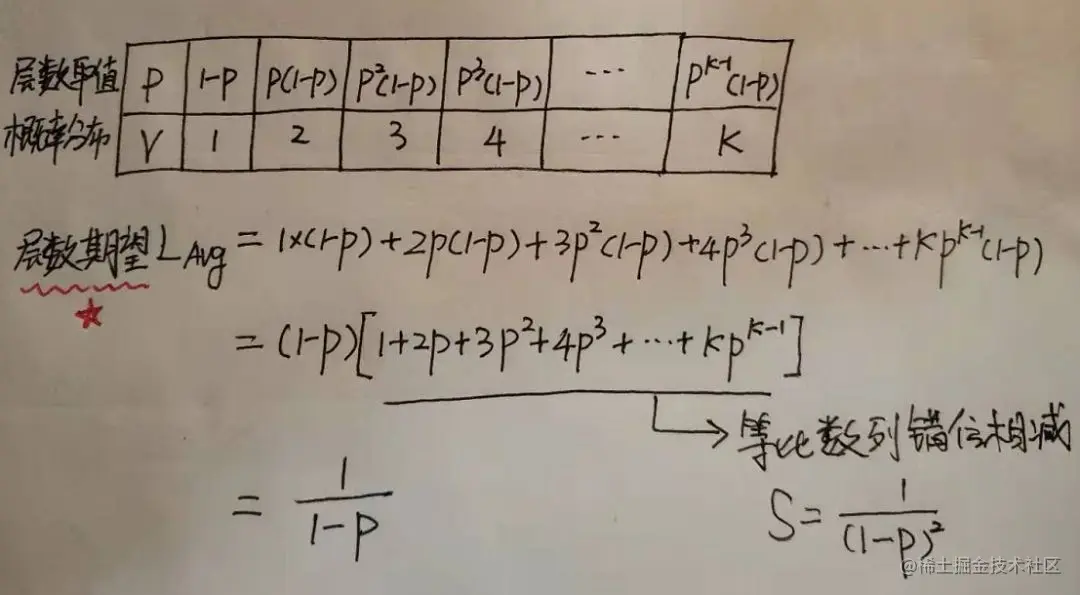 层数取值 P 1-P P(1-P) P²(1-P) P³(1-P) ··· P^{K-1}(1-P)
概率分布 V 1 2 3 4 ··· K
层数期望 L_{Avg} = 1×(1-P)+2P(1-P)+3P²(1-P)+4P³(1-P)+···+KP^{K-1}(1-P)
= (1-P)[1+2P+3P²+4P³+···+KP^{K-1}]
→ 等比数列错位相减
= 1/(1-P) S = 1/(1-P)²
@稀土掘金技术社区